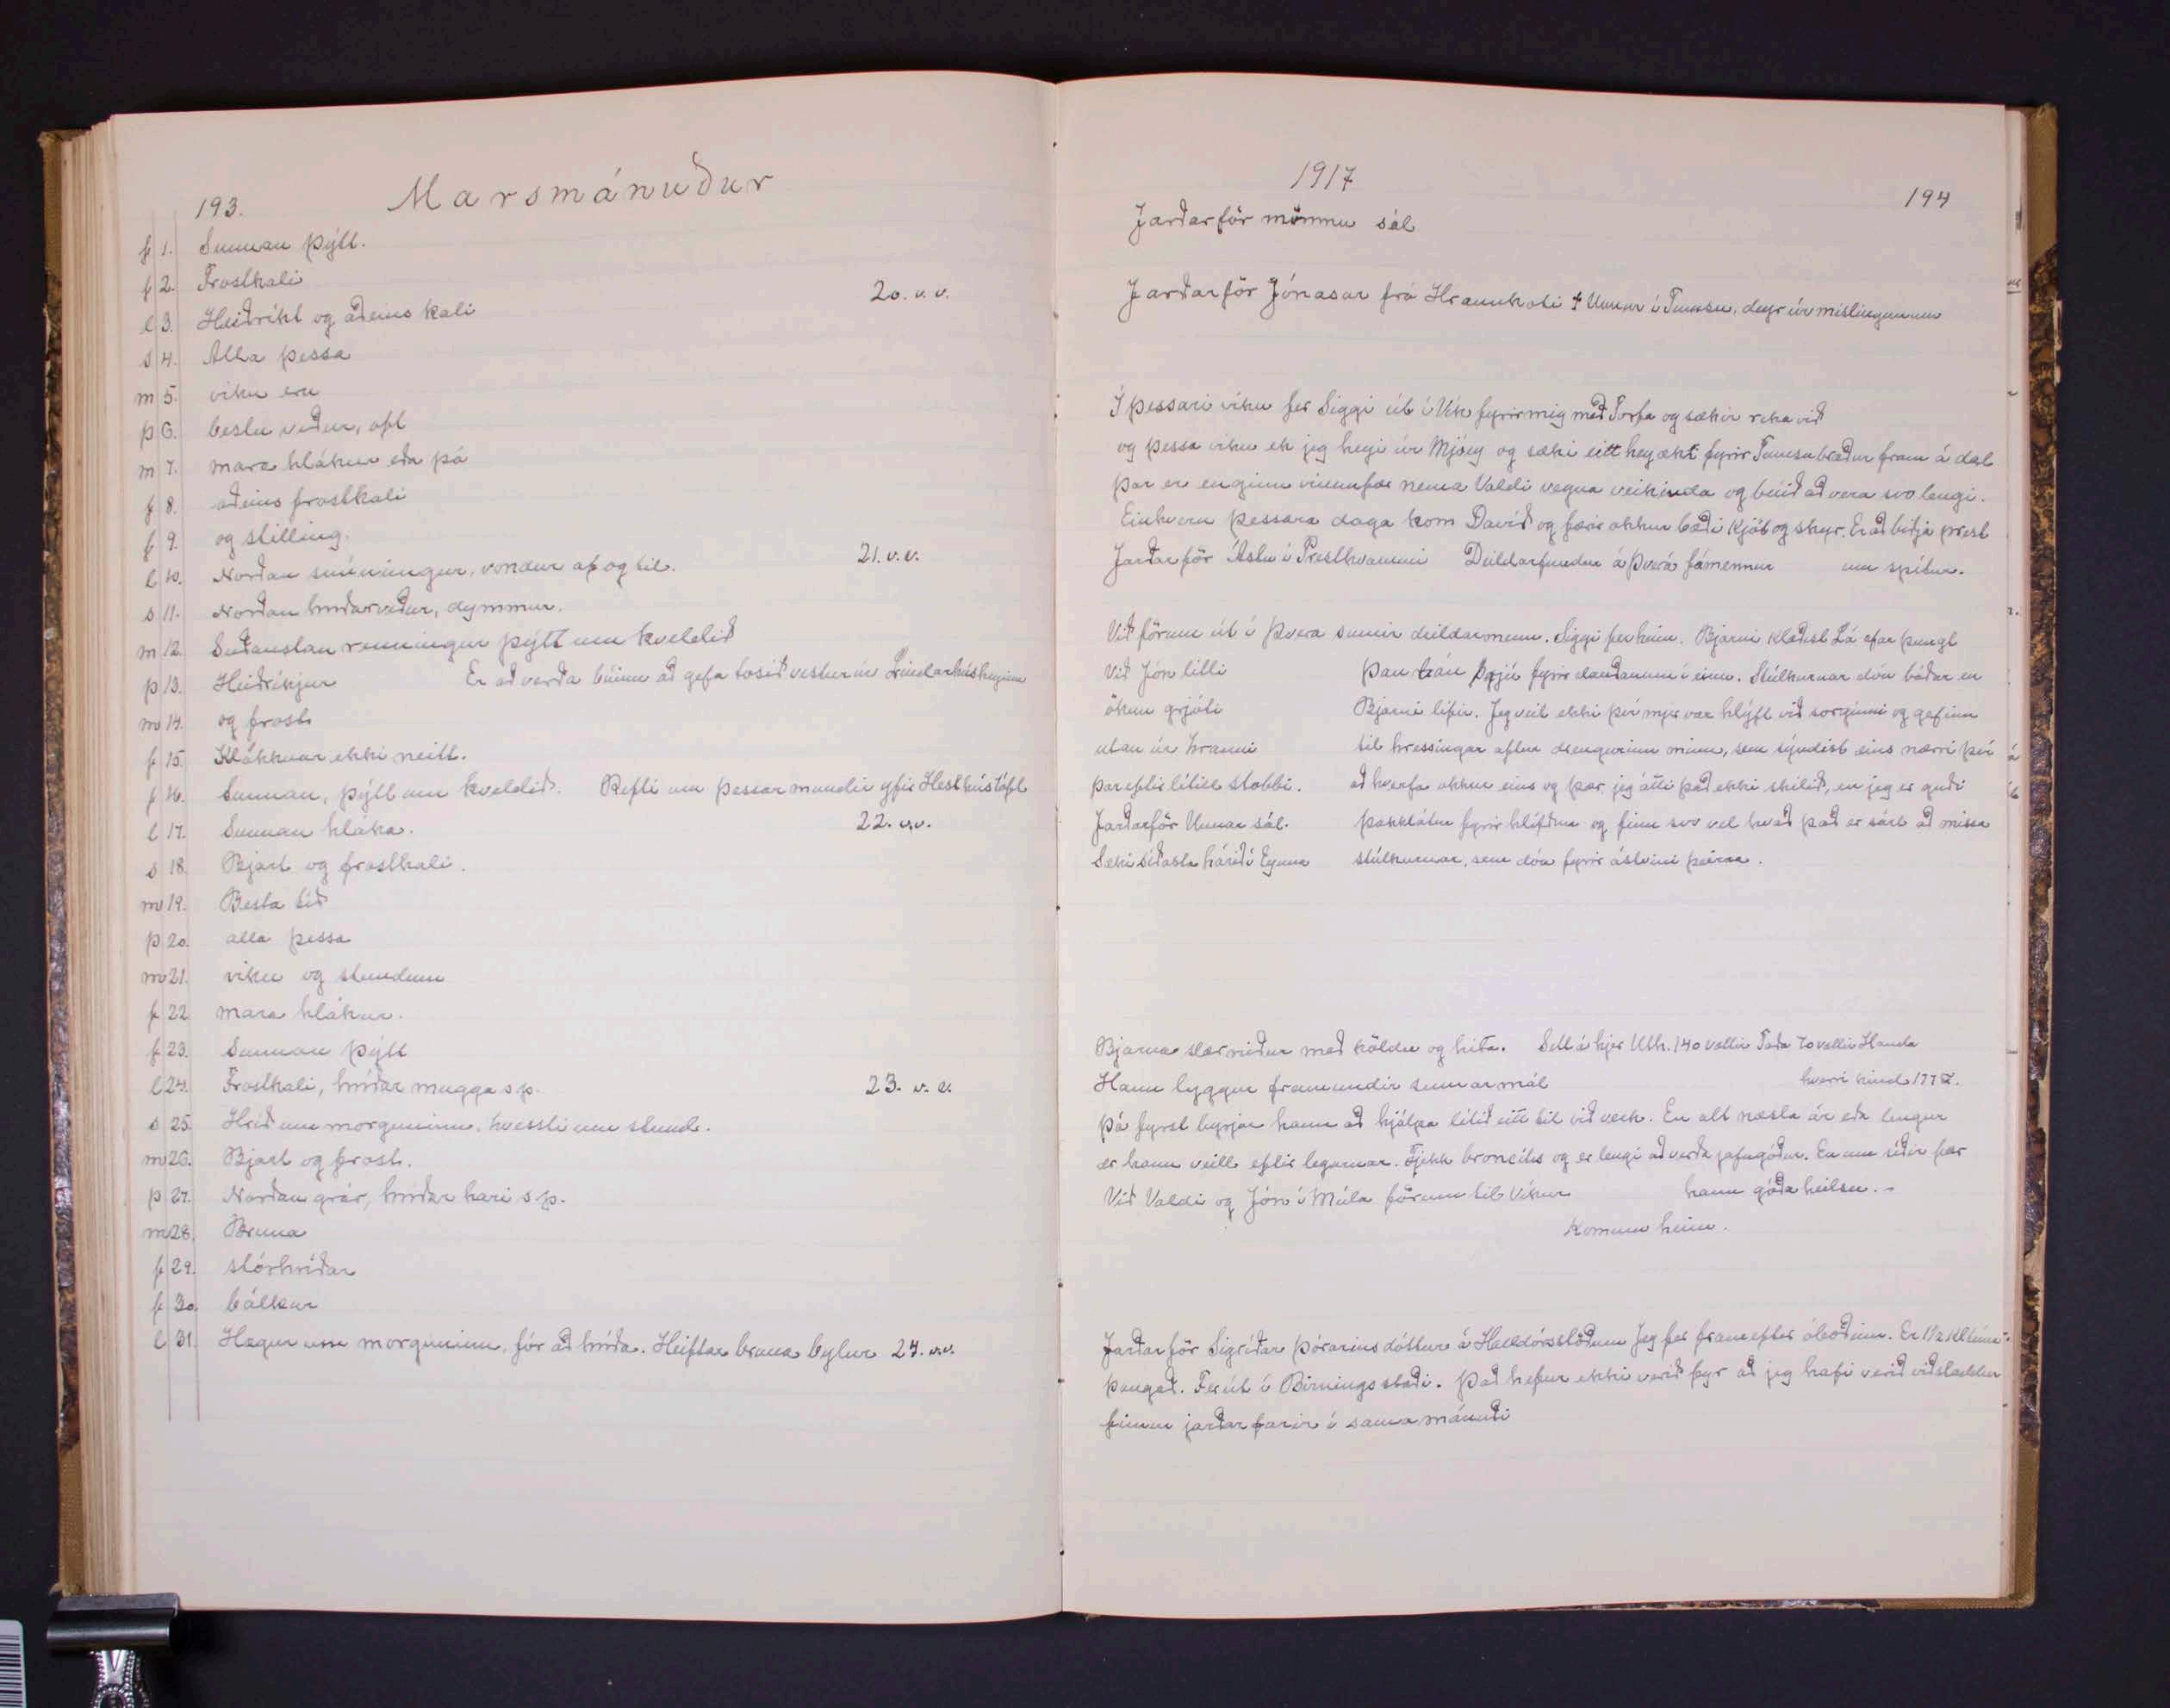 193.
Marsmánuður
f 1. Sunnan þýtt.
f 2. Frostkali
l 3. Heiðríkt og aðeins kali
20. v. v.
s 4. Alla þessa
m 5. viku eru
þ 6. bestu veður, oft
m 7. mara hlákur eða þá
f 8. aðeins frostkali
f 9. og stilling.
l 10. Norðan snúningur, vondur af og til.
21. v. v.
s 11. Norðan hríðarveður, dymmur.
m 12. Suðaustan renningur þýtt um kveldið
þ 13. Heiðríkjur Er að verða búinn að gefa tosið vestur úr Lindarhúsheyinu
m 14. og frost
f 15. Klökkvar ekki neitt.
f 16. Sunnan, þýtt um kveldið. Refti um þessar mundir yfir Hesthústóft
l 17. Sunnan hláka.
22. v.v.
s 18. Bjart og frostkali.
m 19. Besta tíð
þ 20. alla þessa
m 21. viku og stundum
f 22. mara hlákur.
f 23. Sunnan þýtt
l 24. Frostkali, hríðar mugga s.p.
23. v. v.
s 25. Hríð um morguninn, hvessti um stund.
m 26. Bjart og frost.
þ 27. Norðan grár, hríðar hari s.p.
m 28. Bruna
f 29. stórhríðar
f 30. bálkur
l 31. Hægur um morguninn, fór að hríða. Heiftar bruna bylur 24. v.v.
1917
194
Jarðarför mömmu sál
Jarðarför Jónasar frá Hraunkoti † Unnur í Tumsu, deyr úr mislingunum
Í þessari viku fer Siggi út í Vík fyrir mig með Torfa og sækir reka við
og þessa viku ek jeg heyi úr Mjóey og sæki eitt heyækt fyrir Tumsubræður fram á dal
þar er enginn vinnufær nema Valdi vegna veikinda og búið að vera svo lengi.
Einhvern þessara daga kom Davíð og færir okkur bæði kjöt og skyr. Er að biðja prest
um spítur.
Jarðarför Ástu í Presthvammi Deildarfundur á Þverá fámennur
Við förum út í Þverá sumir deildarmenn. Siggi fer heim. Bjarni klæðist Lá afar þungt
Við Jón litli
ökum grjóti
utan úr hrauni
þar eftir lítill stabbi.
Jarðarför Unnar sál.
Sæki síðasta háið í Eyjuna
þau trúu þrjú fyrir dauðanum í einu. Stúlkurnar dóu báðar en
Bjarni lifir. Jeg veit ekki því mjer var hlýft við sorginni og gefinn
til hressingar aftur drengurinn minn, sem sýndist eins nærri því
að hverfa okkur eins og þær, jeg átti það ekki skilið, en jeg er guði
þakklátur fyrir hlífðina og finn svo vel hvað það er sárt að missa
stúlkurnar, sem dóu fyrir ástvini þeirra.
Bjarna slær niður með köldu og hita. Sett á hjer Uth. 140 vættir Taða 70 vættir Handa
hverri kind 177 ℔.
Hann lyggur fram undir sumarmál
þá fyrst byrjar hann að hjálpa lítið eitt til við verk. En alt næsta ár eða lengur
er hann veill eftir legurnar. Fjekk broncítis og er lengi að verða jafngóður. En um síðir fær
hann góða heilsu.
Við Valdi og Jón í Múla förum til Víkur
Komum heim.
Jarðarför Sigríðar Þórarinsdóttur á Halldórsstöðum Jeg fer fram eftir óboðinn. Er 1½ kl tíma
þangað. Fer út í Birningsstaði. Það hefur ekki verið fyr að jeg hafi verið viðstaddur
fimm jarðarfarir í sama mánuði